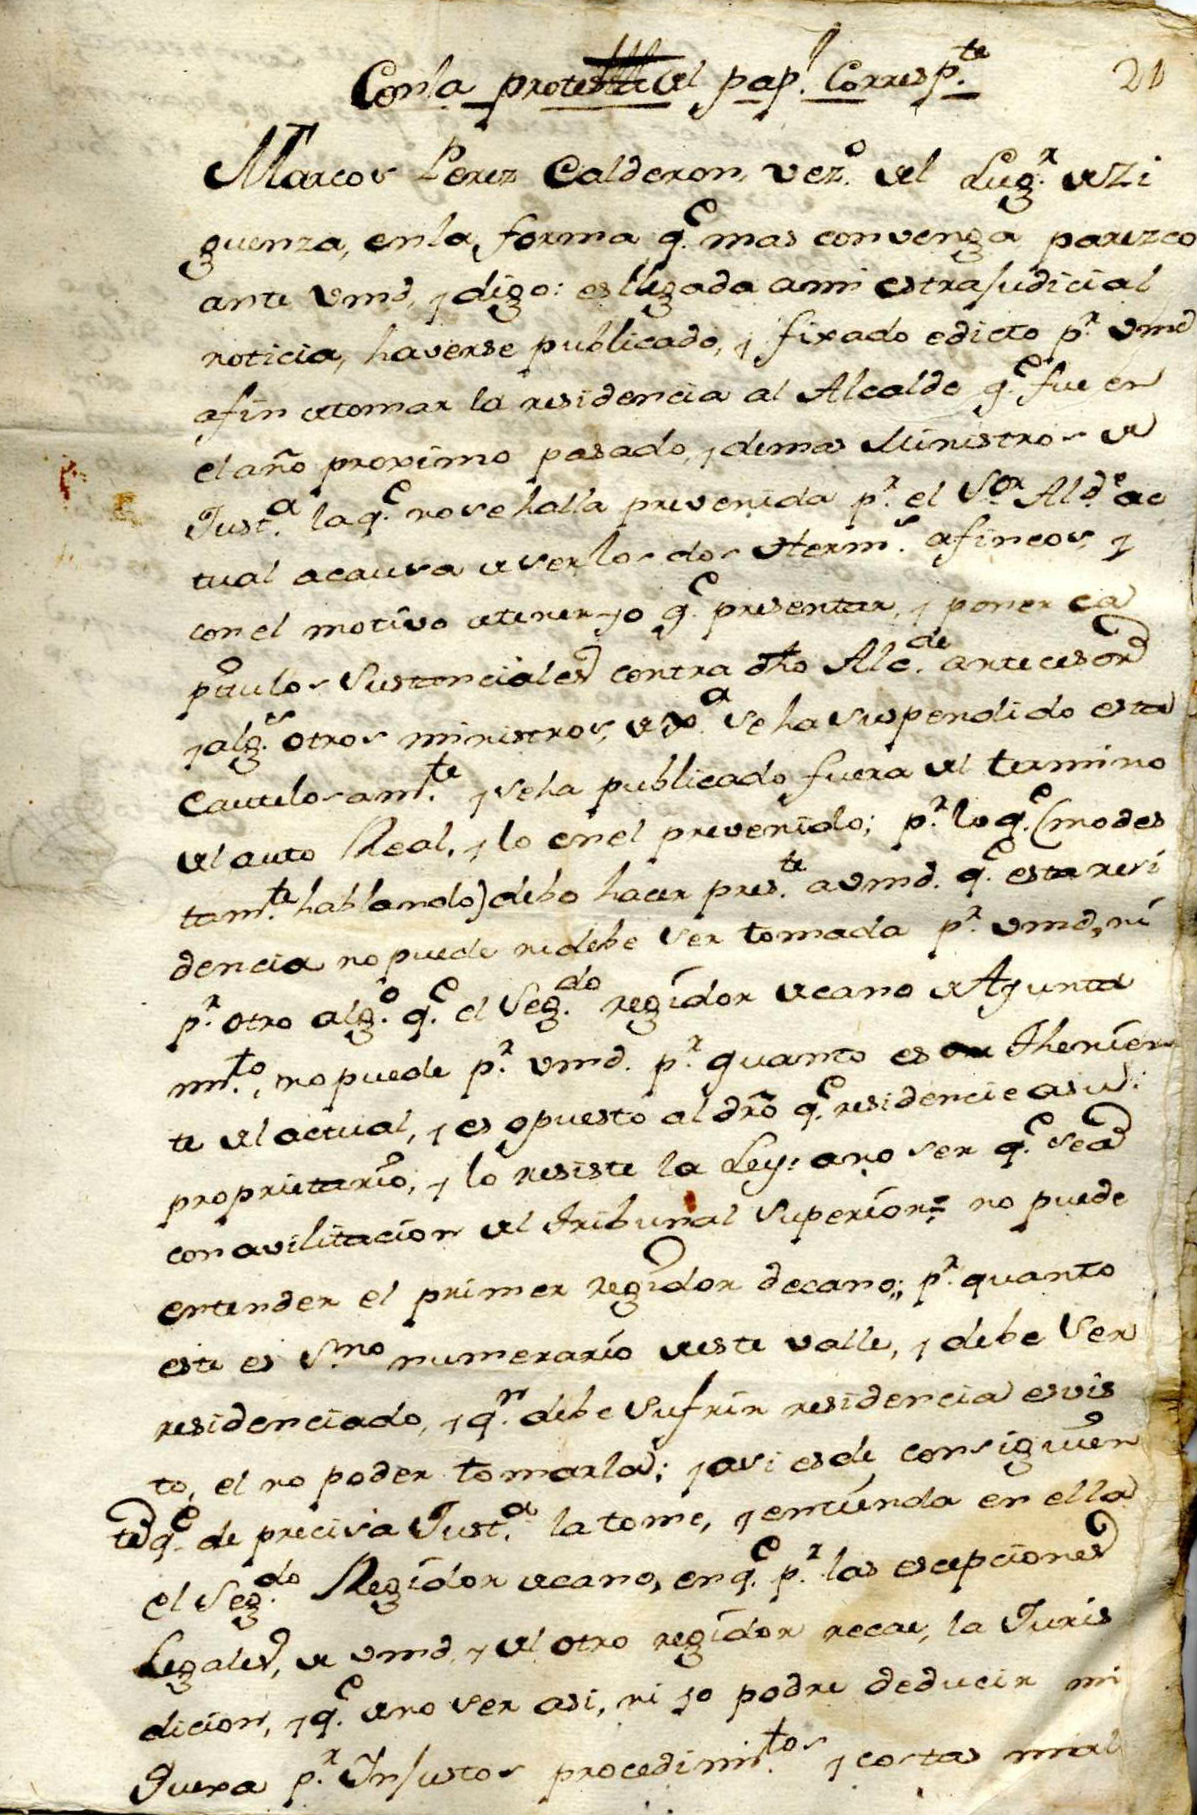 Con la protesta del pap.l Corresp.te
21
Marcos Perez Calderon, vez.o del Lug.r de Zi
guenza, en la forma q.e mas convenga parezco
ante Vmd, y digo: es llegada a mi estrajudicial
noticia, haverse publicado, y fixado edicto p.r Vmd
a fin de tomar la residencia al Alcalde q.e fue en
el año proximo pasado, y demas Ministros de
Just.a la q.e no se halla prevenida p.r el S.or Ald.e ac
tual a causa de ser los dos de term.s afincos, y
con el motivo de tener yo q.e presentar, y poner ca
pitulos Sustanciales contra dho Alc.de antecesor
y alg.s otros ministros, de Xa se ha suspendido esta
cautelosam.te y se ha publicado fuera del termino
del auto Real, y lo en el prevenido; p.r lo q.e (modes
tam.te hablando) debo hacer pres.te a vmd. q.e esta resi
dencia no puede ni debe ser tomada p.r vmd, ni
p.r otro alg.o q.e el Seg.do regidor decano de Ayunta
mi.to, no puede p.r vmd. p.r quanto es Thenien
te del actual, y es opuesto al dro q.e residencie a su
proprietario, y lo resiste la Ley: a no ser q.e sea
con avilitacion del Tribunal Superior = no puede
entender el primer regidor decano; p.r quanto
este es S.no numerario de este valle, y debe ser
residenciado, y q.n debe sufrir residencia es vis
to, el no poder tomarla; y asi es de consiguien
te q.e de precisa Just.a la tome, y entienda en ella
el Seg.do Regidor decano, en q.e p.r las escepciones
Legales, de vmd, y del otro regidor recae, la Juris
dicion, y q.e de no ser asi, ni yo podre deducir mi
Quexa p.r Injustos procedimi.tos y costas mal